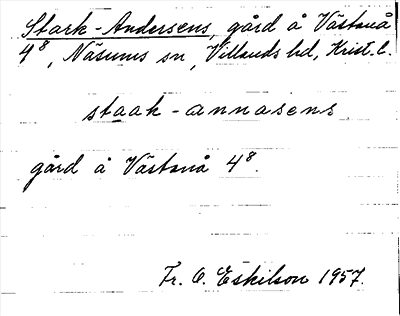 Stark-Andersens, gård å Västanå
4⁸, Näsums sn, Villands hd, Krist. l.
staak-annasens
gård å Västanå 4⁸.
Fr. O. Eskilson 1957.